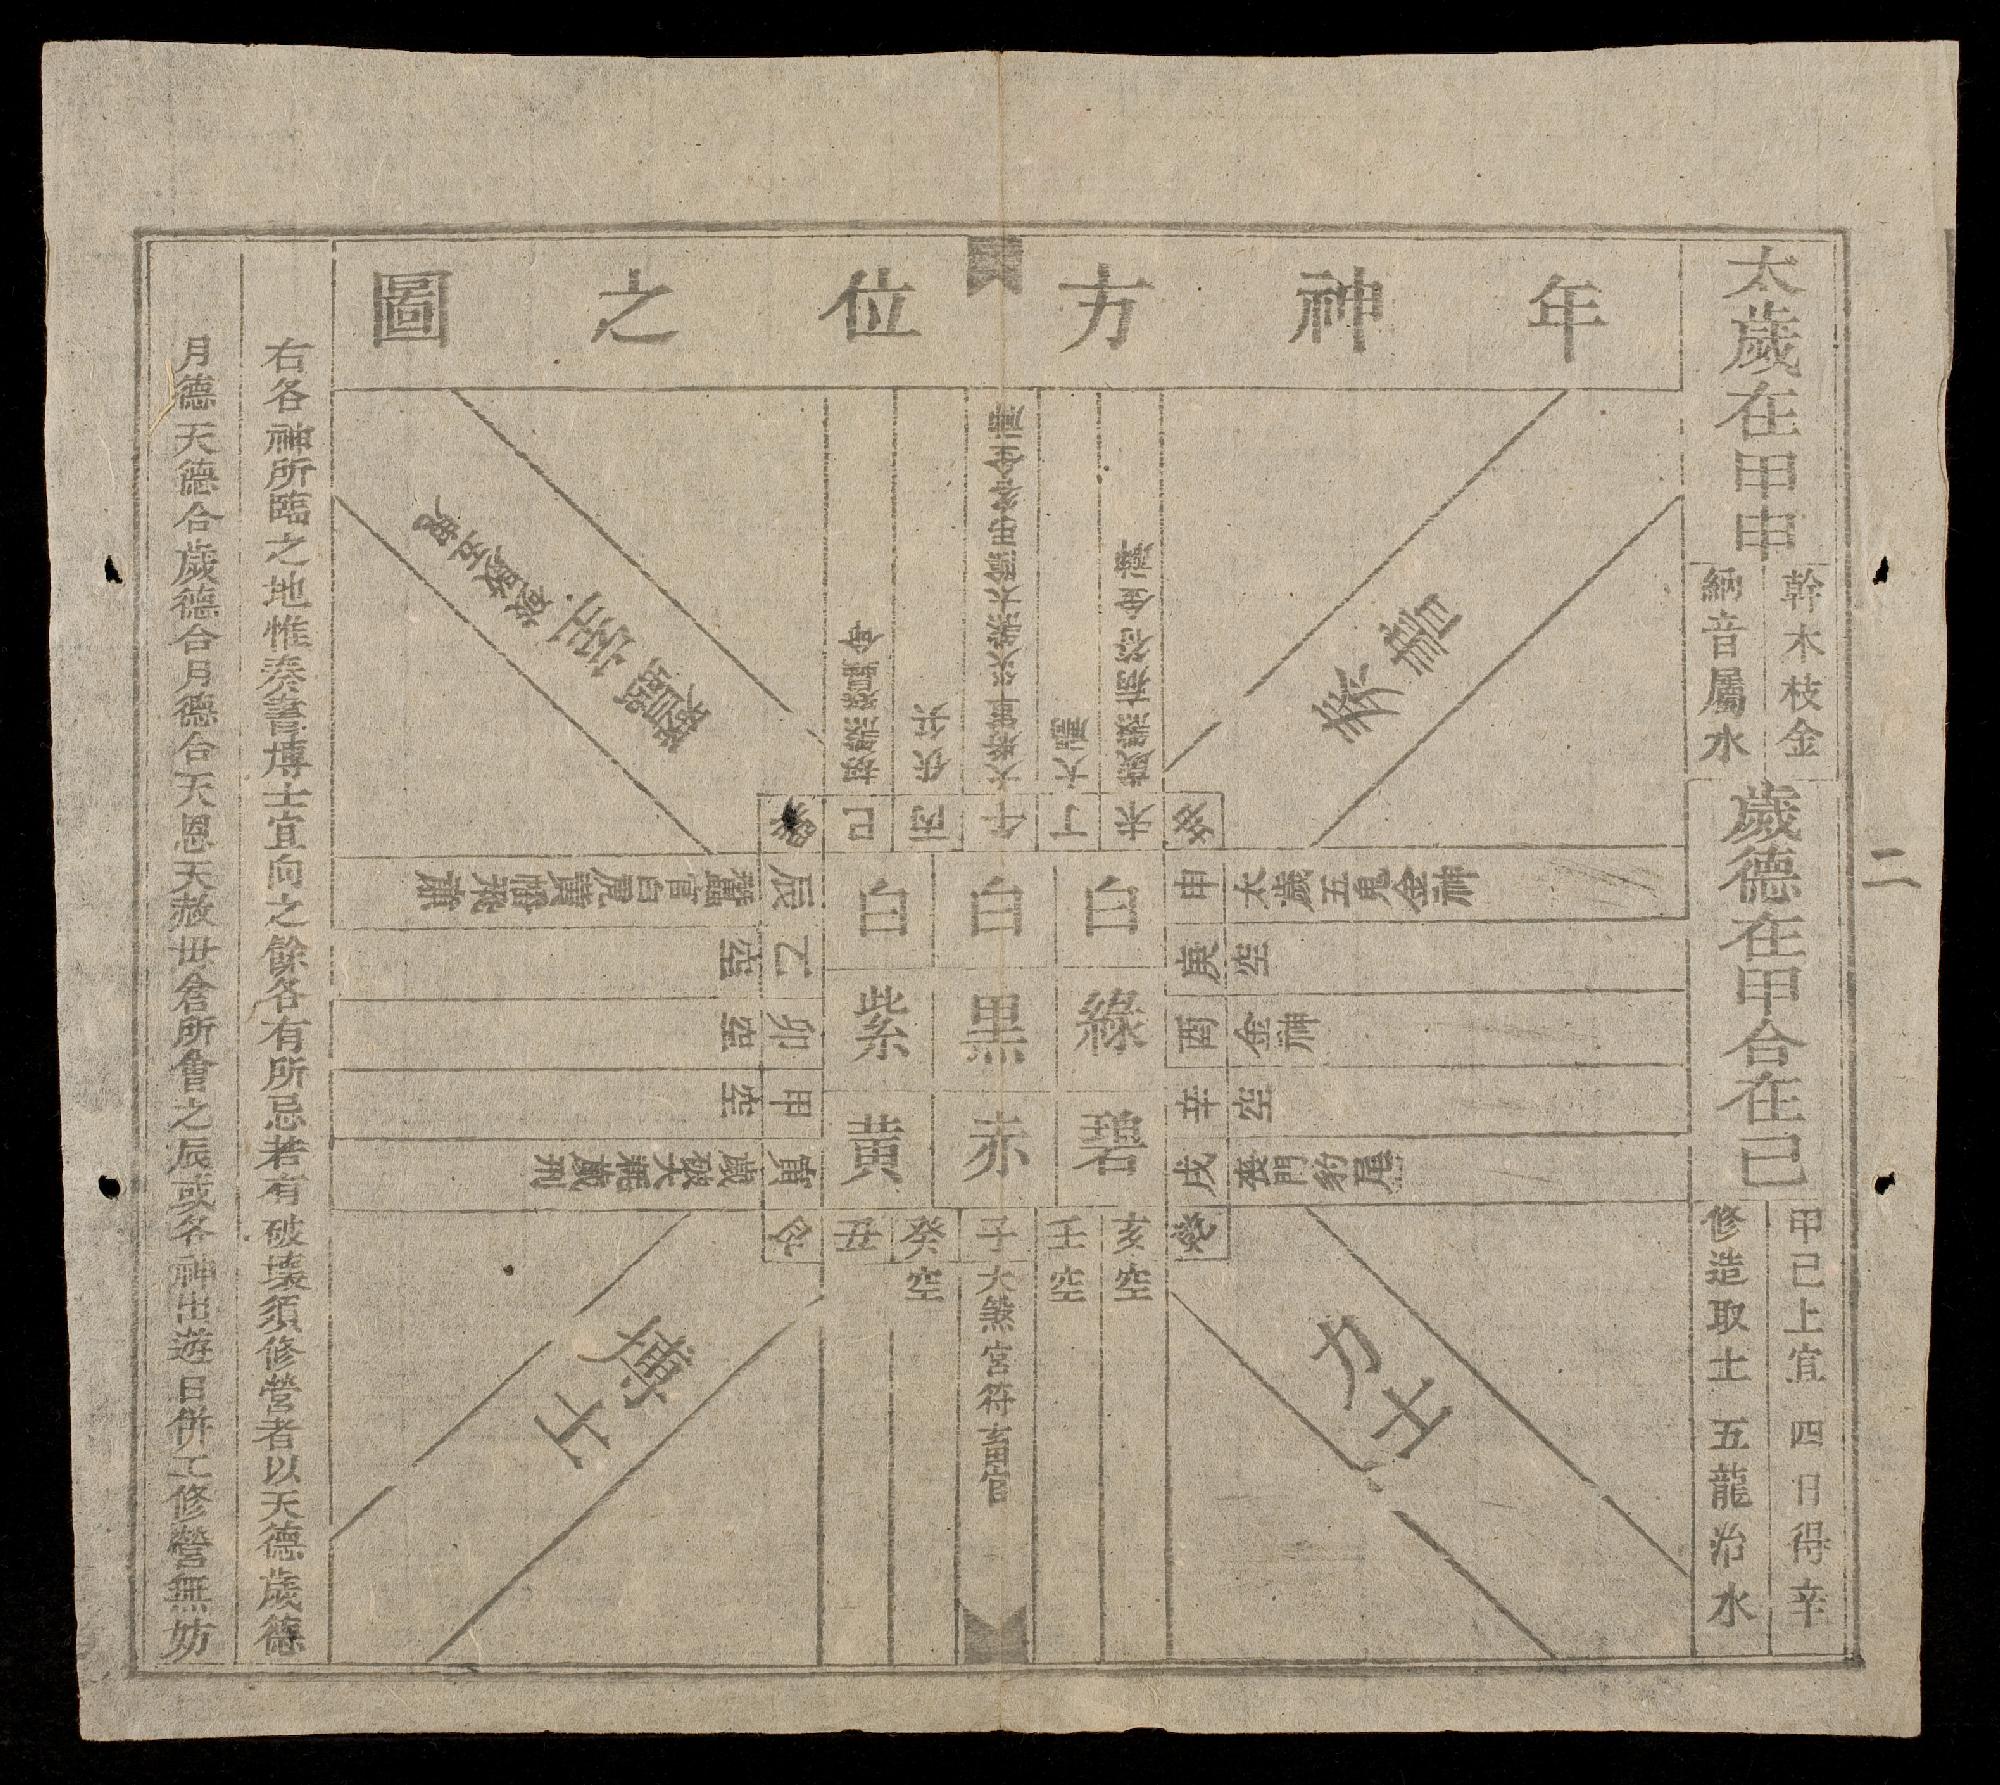 二
太歲在甲申
幹木枝金
納音屬水
歲德在甲合在己
甲己上宜
修造取土
四日得辛
五龍治水
年神方位之圖
奏書
坤
未
歲煞 金神
丁
大禍
午
大將軍災煞太陰
金神
丙
伏兵
巳
劫煞
巽
蠶室
歲
辰
蠶官白虎黃幡飛廉
乙
空
卯
空
甲
空
寅
歲破大耗歲刑
艮
博士
丑
癸
空
子
大煞官符畜官
壬
空
亥
空
乾
力士
戌
喪門豹尾
辛
空
酉
金神
庚
空
申
太歲五鬼金神
白白白
綠黑紫
碧赤黃
右各神所臨之地惟奏書博士宜向之餘各有所忌若有破壞須修營者以天德歲德
月德天德合歲德合月德合天恩天赦毋倉所會之辰或各神出遊日併工修營無妨